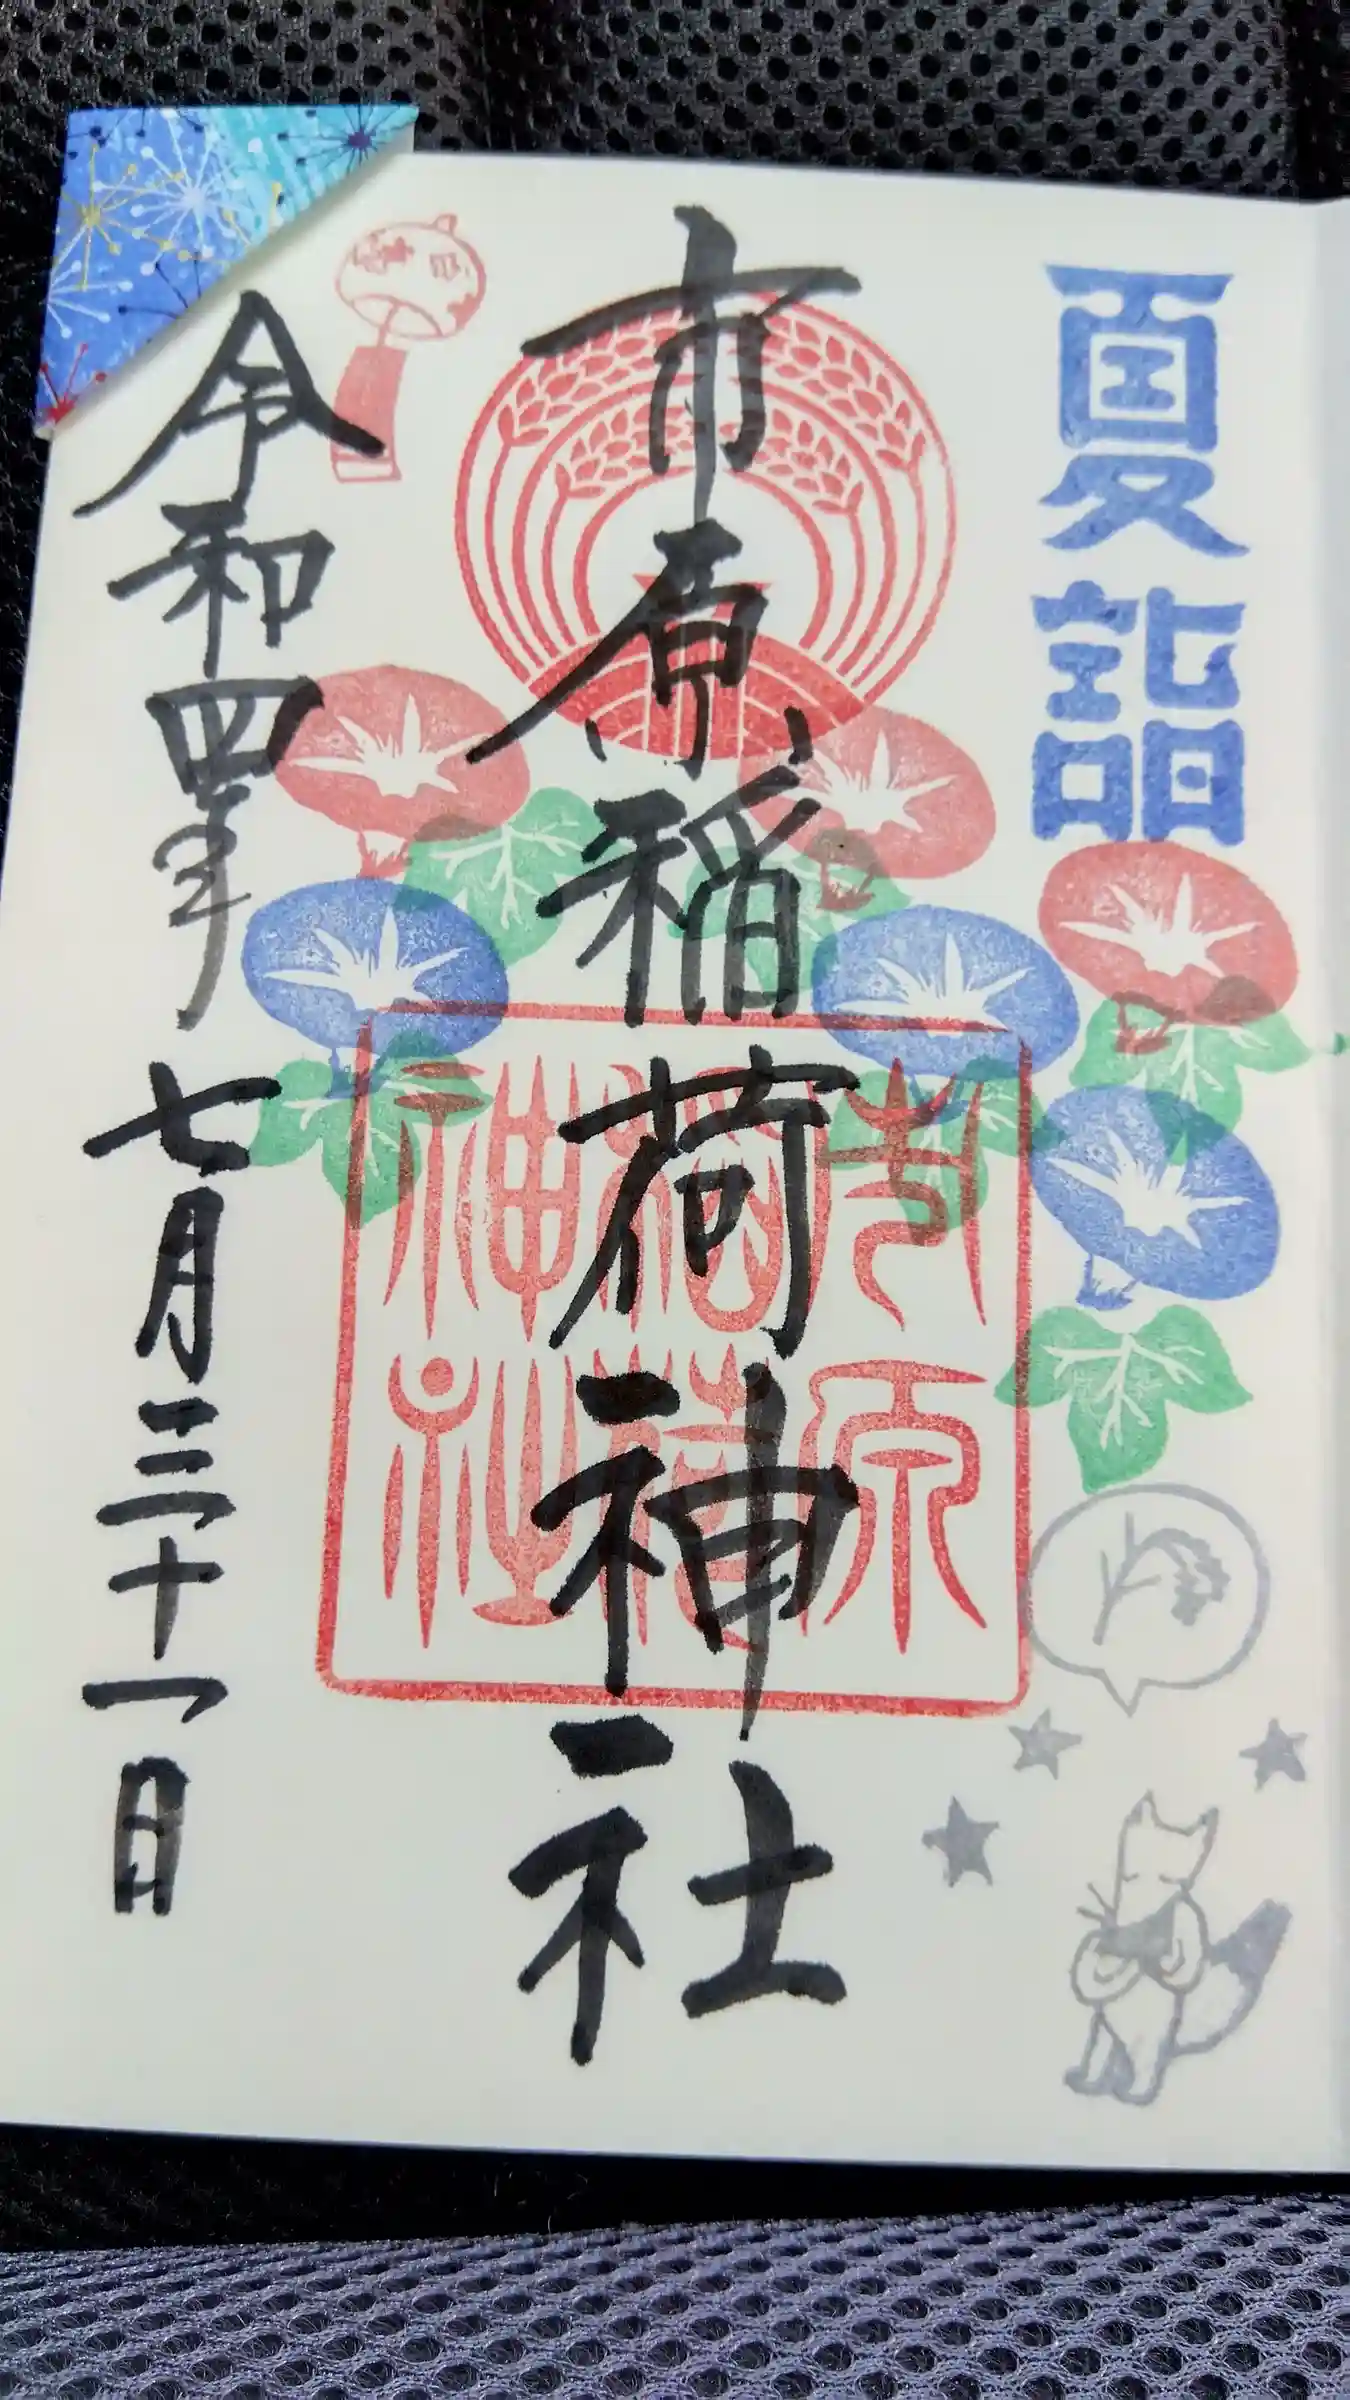 夏詣
市原稲荷神社
市原
稲荷
神社
令和四年 七月三十一日